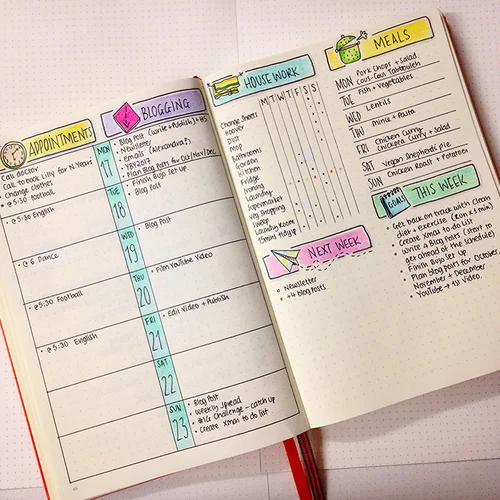 APPOINTMENTS
Call doctor
Call to book Lilly for N.Years
Change clothes
@5:30 football
@5:30 English
@ 6 Dance
@5:30 Football
@ 5:30 English
MON
17
TUE
18
WED
19
THU
20
FRI
21
SAT
22
SUN
23
BLOGGING
Blog Post (write+Publish)
Newsletter
Emails (Alexandra!)
YBY2017
Plan Blog Posts for Oct/Nov/Dec
Finish Bujo Set up
Blog Post
Blog Post
Film YouTube Video
Edit Video + Publish
Blog Post
Weekly Spread
#IG Challenge - catch up
Create Xmas to do list
HOUSEWORK
M T W T F S S
Change Sheets
Hoover
Dust
Mop
Bathrooms
Garden
Kitchen
Fridge
Ironing
Laundry
Supermarket
Veg Shopping
Laundry Room
15mins tidy up
NEXT WEEK
Newsletter
+4 blog Posts
MEALS
MON Pork Chops + Salad
Cous-Cous Tabbouleh
TUE Fish + Vegetables
WED Lentils
THU Mince + Pasta
FRI Chicken Curry
Chickpea Curry + Salad
SAT Vegan Shepherds Pie
SUN Chicken Roast + Potatoes
GOALS
THIS WEEK
Get back on track with Clean
diet + exercise (Run x 5 min)
Create Xmas to do list
Write 4 Blog Posts (Start to
get ahead of the schedule)
Finish Bujo Set Up
Plan blog Posts for October,
November + December
YouTube → 1st Video